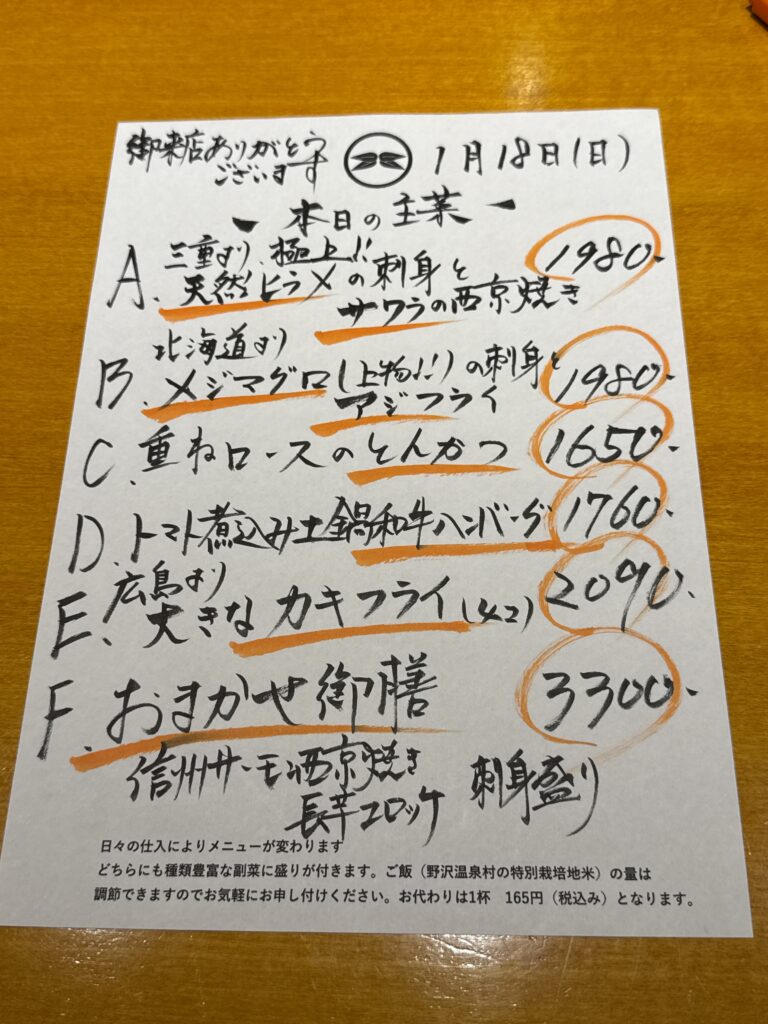 御来店ありがとう
ございます
1月18日(日)
本日の主菜
A. 三重より、極上!!
天然!ヒラメの刺身と
サワラの西京焼き
1980-
B. 北海道より
メジマグロ(上物!!)の刺身と
アジフライ
1980-
C. 重ねロースのとんかつ 1650-
D. トマト煮込み土鍋和牛ハンバーグ 1760-
E. 広島より
大きなカキフライ(4コ) 2090-
F. おまかせ御膳 3300-
信州サーモン西京焼き 刺身盛り
長芋コロッケ
日々の仕入によりメニューが変わります
どちらにも種類豊富な副菜に盛りが付きます。ご飯(野沢温泉村の特別栽培地米)の量は
調節できますのでお気軽にお申し付けください。お代わりは1杯 165円(税込み)となります。